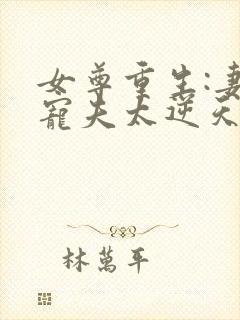 女尊重生:妻
寵夫太逆天
林萬平